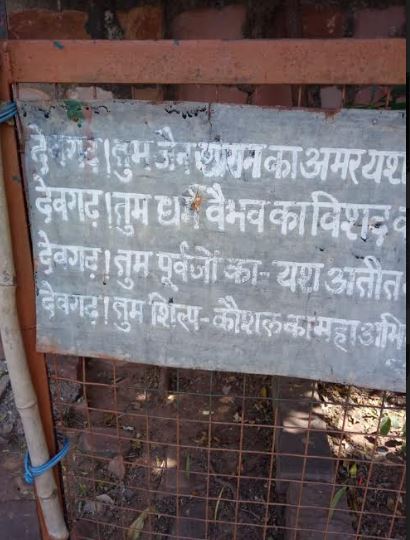 देवगढ़।तुम जैन शासन का अमर यश
देवगढ़।तुम धर्म वैभव का विशद
देवगढ़।तुम पूर्वजों का - यश अतीत
देवगढ़।तुम शिल्प - कौशल का महा अभि